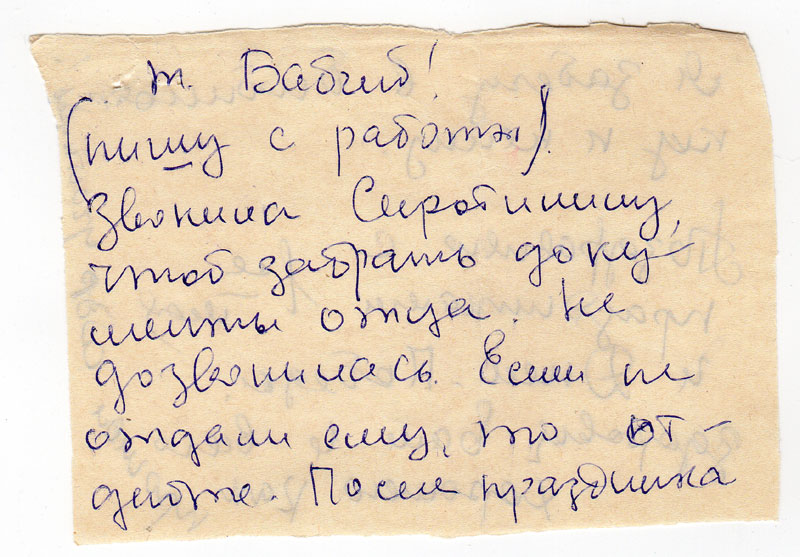 т. Бабий!
(пишу с работы).
Звонила Сиротинину,
чтоб забрать доку-
менты отца. Не
дозвонилась. Если не
отдали ему, то от-
дайте. После праздника